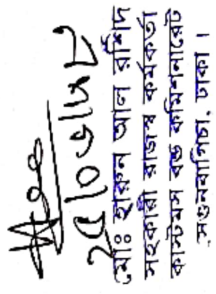 ২৫।০৬।২৭
মোঃ হারুন অাল রশিদ
সহকারী রাজস্ব কর্মকর্তা
কাস্টমস বন্ড কমিশনারেট
সেগুনবাগিচা, ঢাকা।